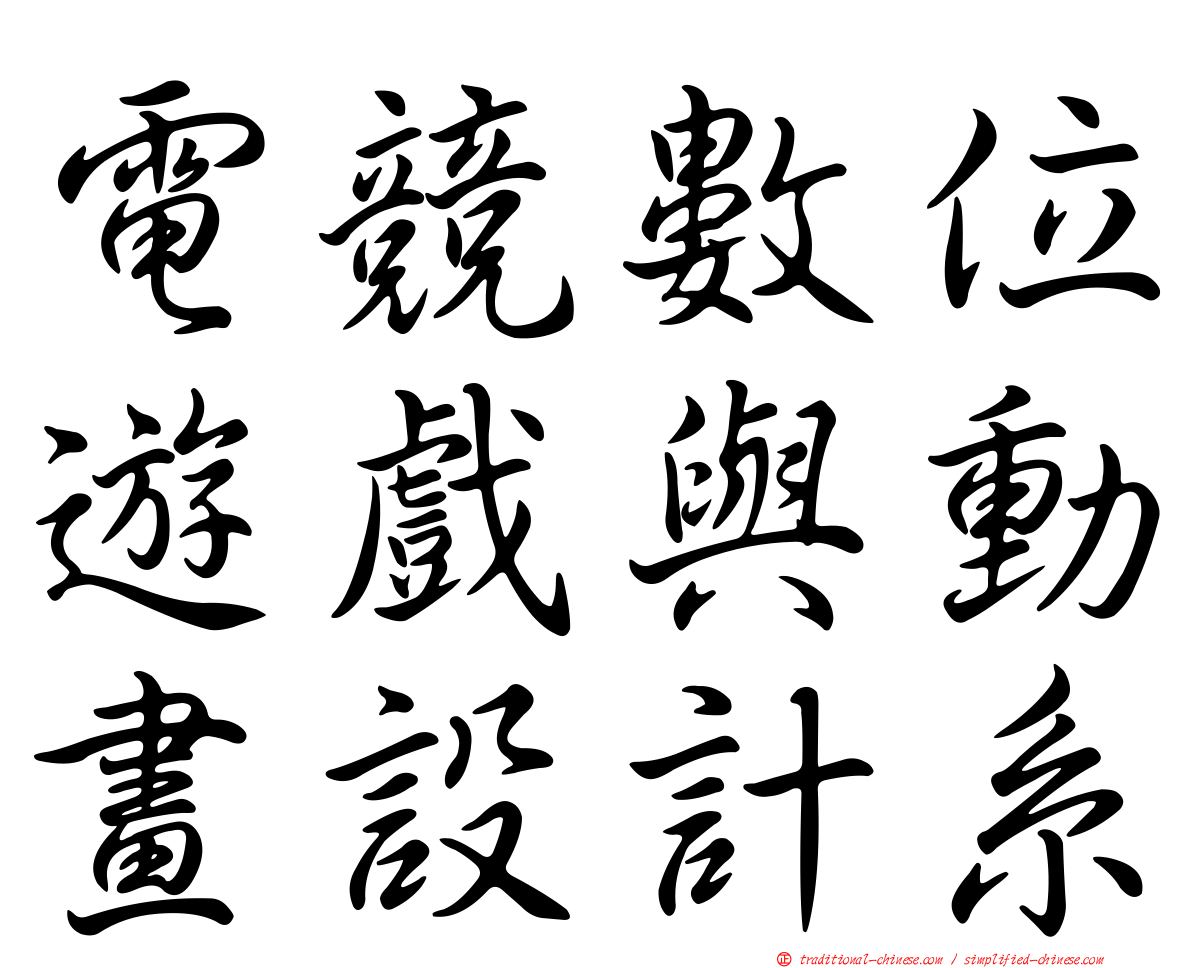 電競數位
遊戲與動
畫設計系
正 traditional-chinese.com / simplified-chinese.com